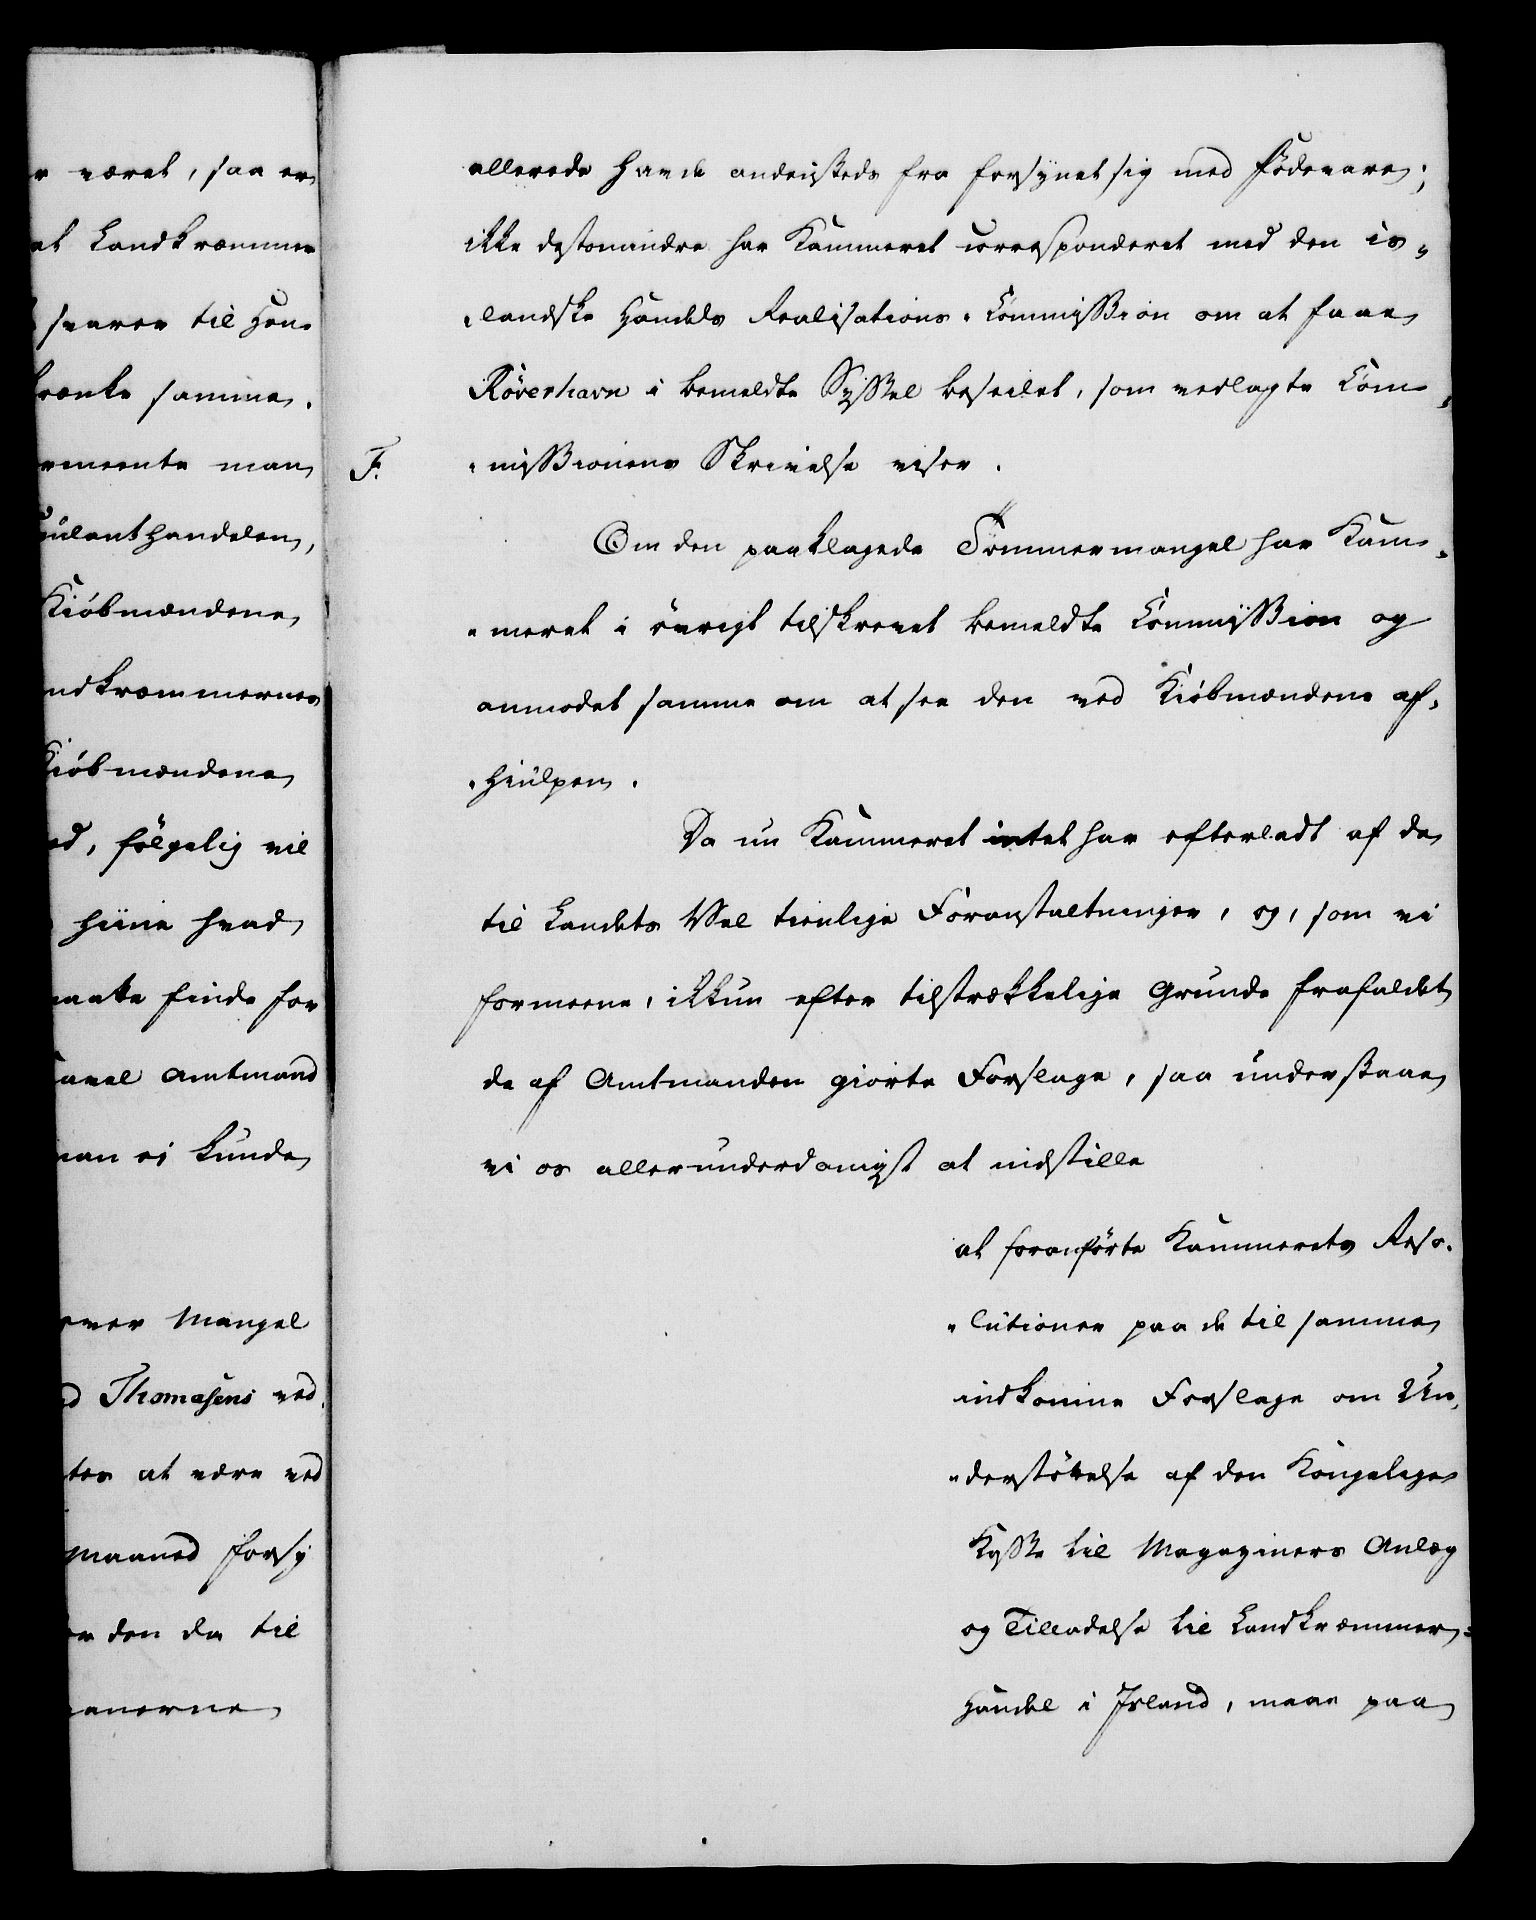 r været, saa er
at Landkræmmer
svarer til Han-
krænke samme.
rmeente man
ulanthandelen,
Kiöbmændene
ndkræmmernes
Kiöbmændene
ed, fölgelig vil
hiine hvad
maatte finde for
Amtmand
man ei kunde
over Mangel
d Thomasens ved
tes at være ved
Maaned forsy
er den da til
avnerne
allerede havde andensteds fra forsÿnet sig med Födevare;
ikke destomindre har Kammeret corresponderet med den is-
-landske Handels Realisations-Commission om at faae
Röverhavn i bemeldte Syssel beseilet, som vedlagte Com-
F. -missionens Skrivelse viser.
Om den paaklagede Tömmermangel har Kam-
-meret i övrigt tilskrevet bemeldte Commission og
anmodet samme om at see den ved Kiöbmændene af-
-hiulpen.
Da nu Kammeret intet har efterladt af de
til Landets Vel tienlige Foranstaltninger, og, som vi
formeene, ikkun efter tilstrækkelige Grunde frafaldet
de af Amtmanden giorte Forslage, saa understaae
vi os allerunderdanigst at indstille
at foranförte Kammerets Reso-
-lutioner paa de til samme
indkomne Forslage om Un-
-derstöttelse af den Kongelige
Kasse til Magaziners Anlæg
og Tilladelse til Landkræmmer-
Handel i Island, maae paa